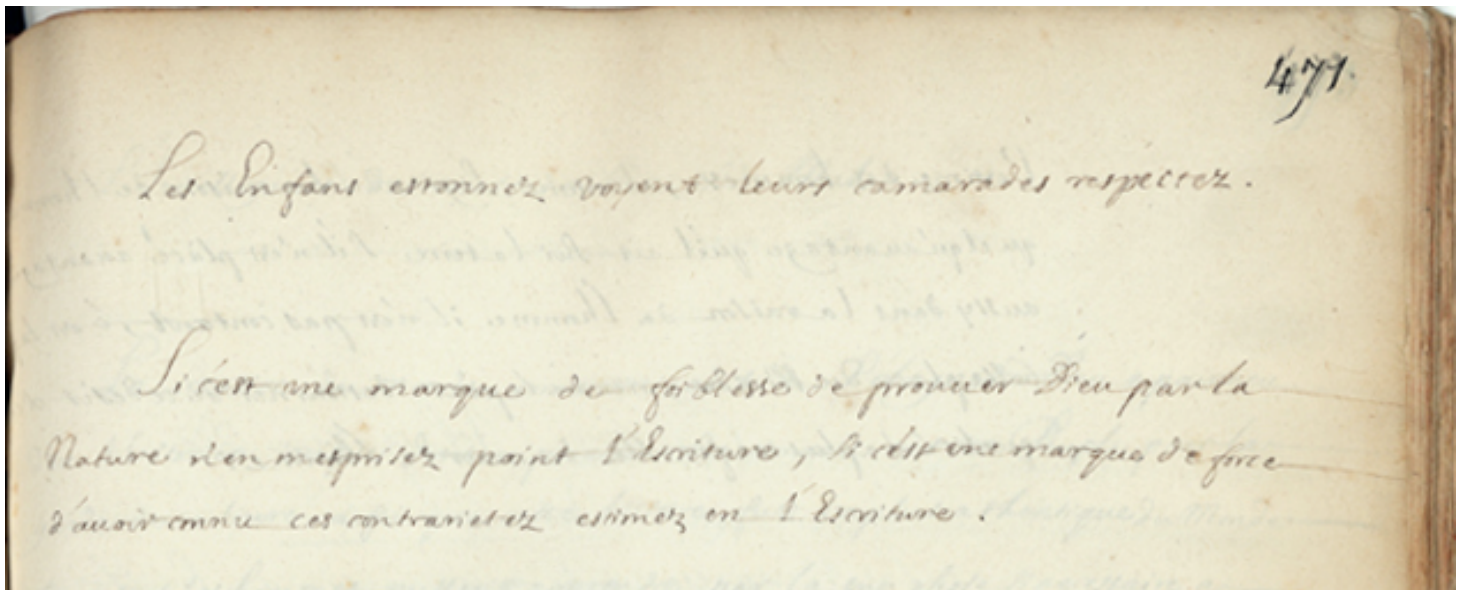 471.
Les Enfans estonnez voyent leurs camarades respectez.
Si c'est une marque de foiblesse de prouuer Dieu par la
Nature n'en mesprisez point l'Escriture, si c'est une marque de force
d'auoir connu ces contrarietez estimez en l'Escriture.